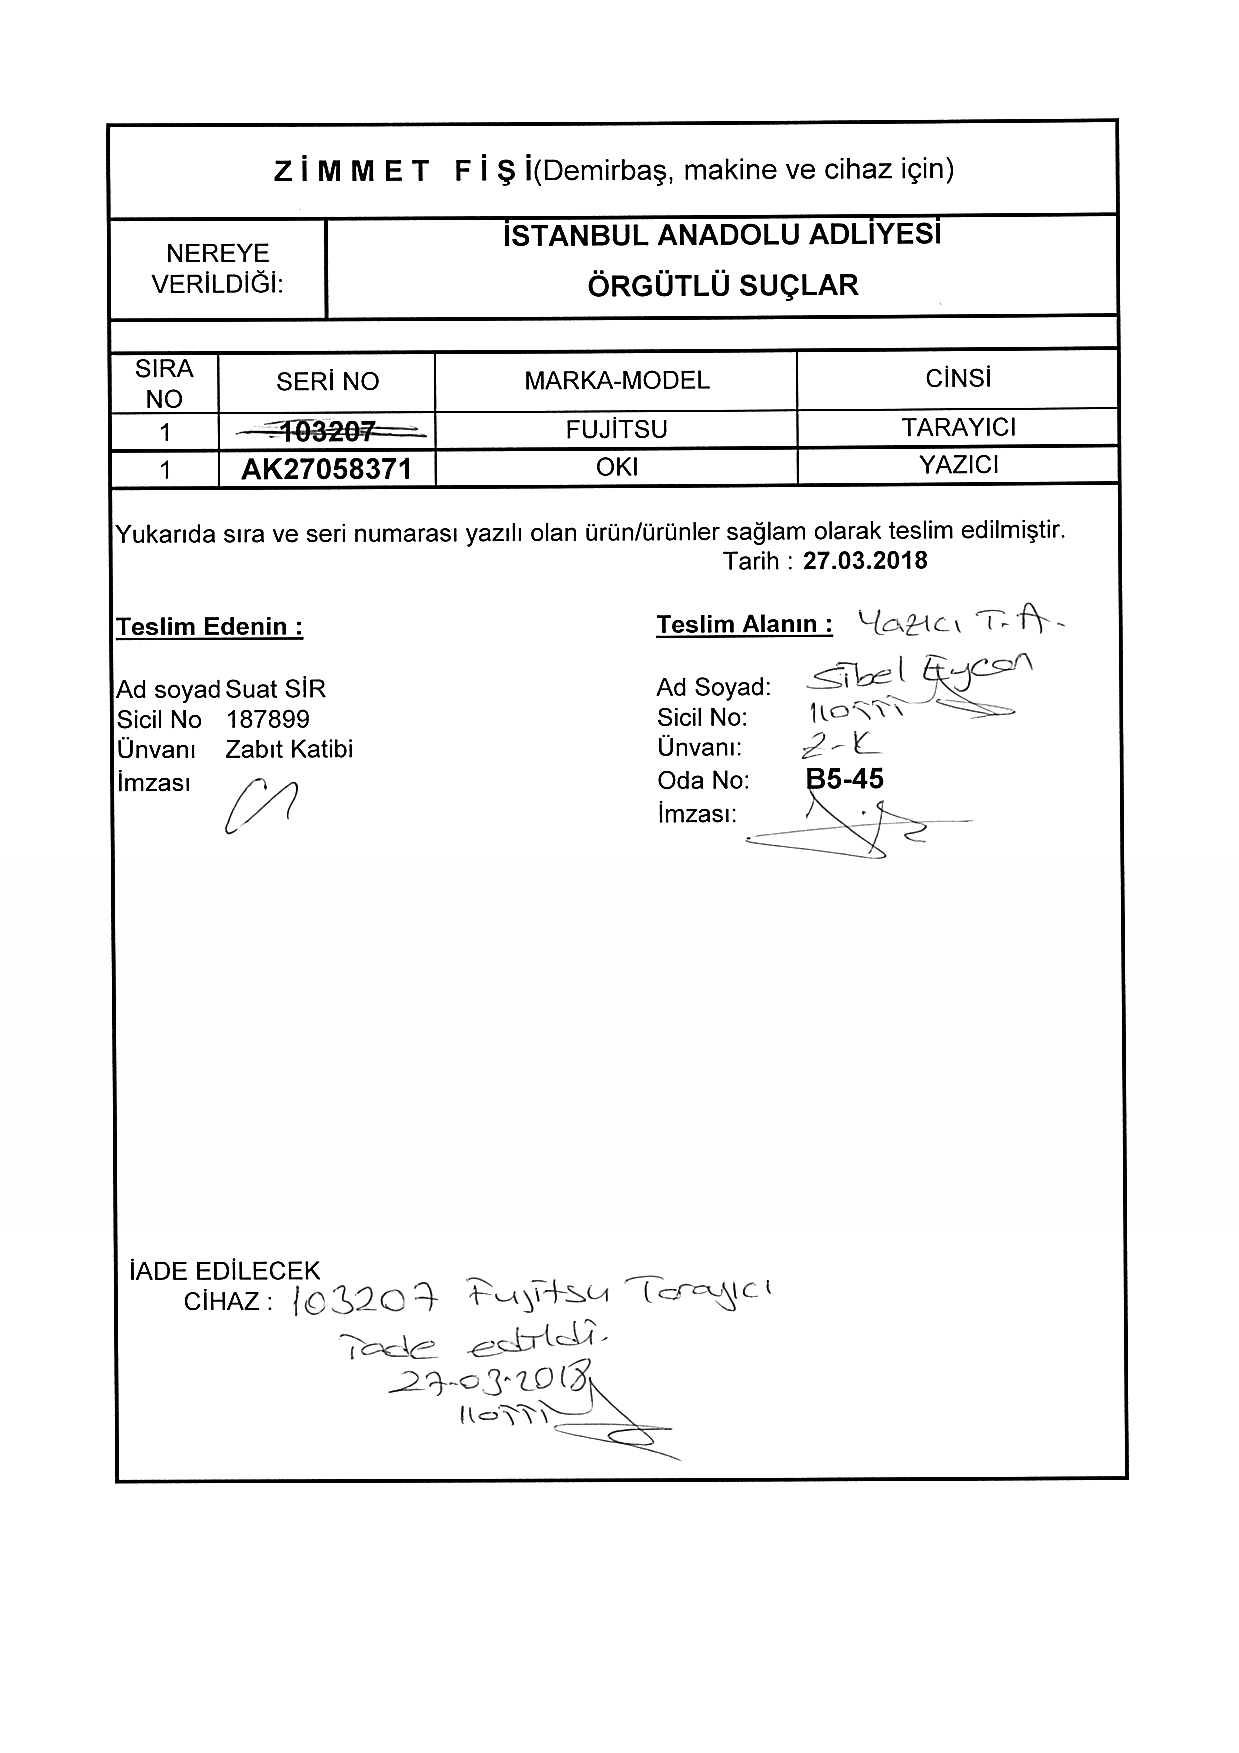 ZİMMET FİŞİ(Demirbaş, makine ve cihaz için)
NEREYE VERİLDİĞİ:
İSTANBUL ANADOLU ADLİYESİ
ÖRGÜTLÜ SUÇLAR
SIRA NO SERİ NO MARKA-MODEL CİNSİ
1 103207 FUJİTSU TARAYICI
1 AK27058371 OKI YAZICI
Yukarıda sıra ve seri numarası yazılı olan ürün/ürünler sağlam olarak teslim edilmiştir.
Tarih : 27.03.2018
Teslim Edenin :
Ad soyad Suat SİR
Sicil No 187899
Ünvanı Zabıt Katibi
İmzası
Teslim Alanın : Yazıcı T.A.
Ad Soyad: Sibel
Sicil No:
Ünvanı: Z-K
Oda No: B5-45
İmzası:
İADE EDİLECEK
CİHAZ : 103207 Fujitsu Tarayıcı
iade edildi.
27-03-2018